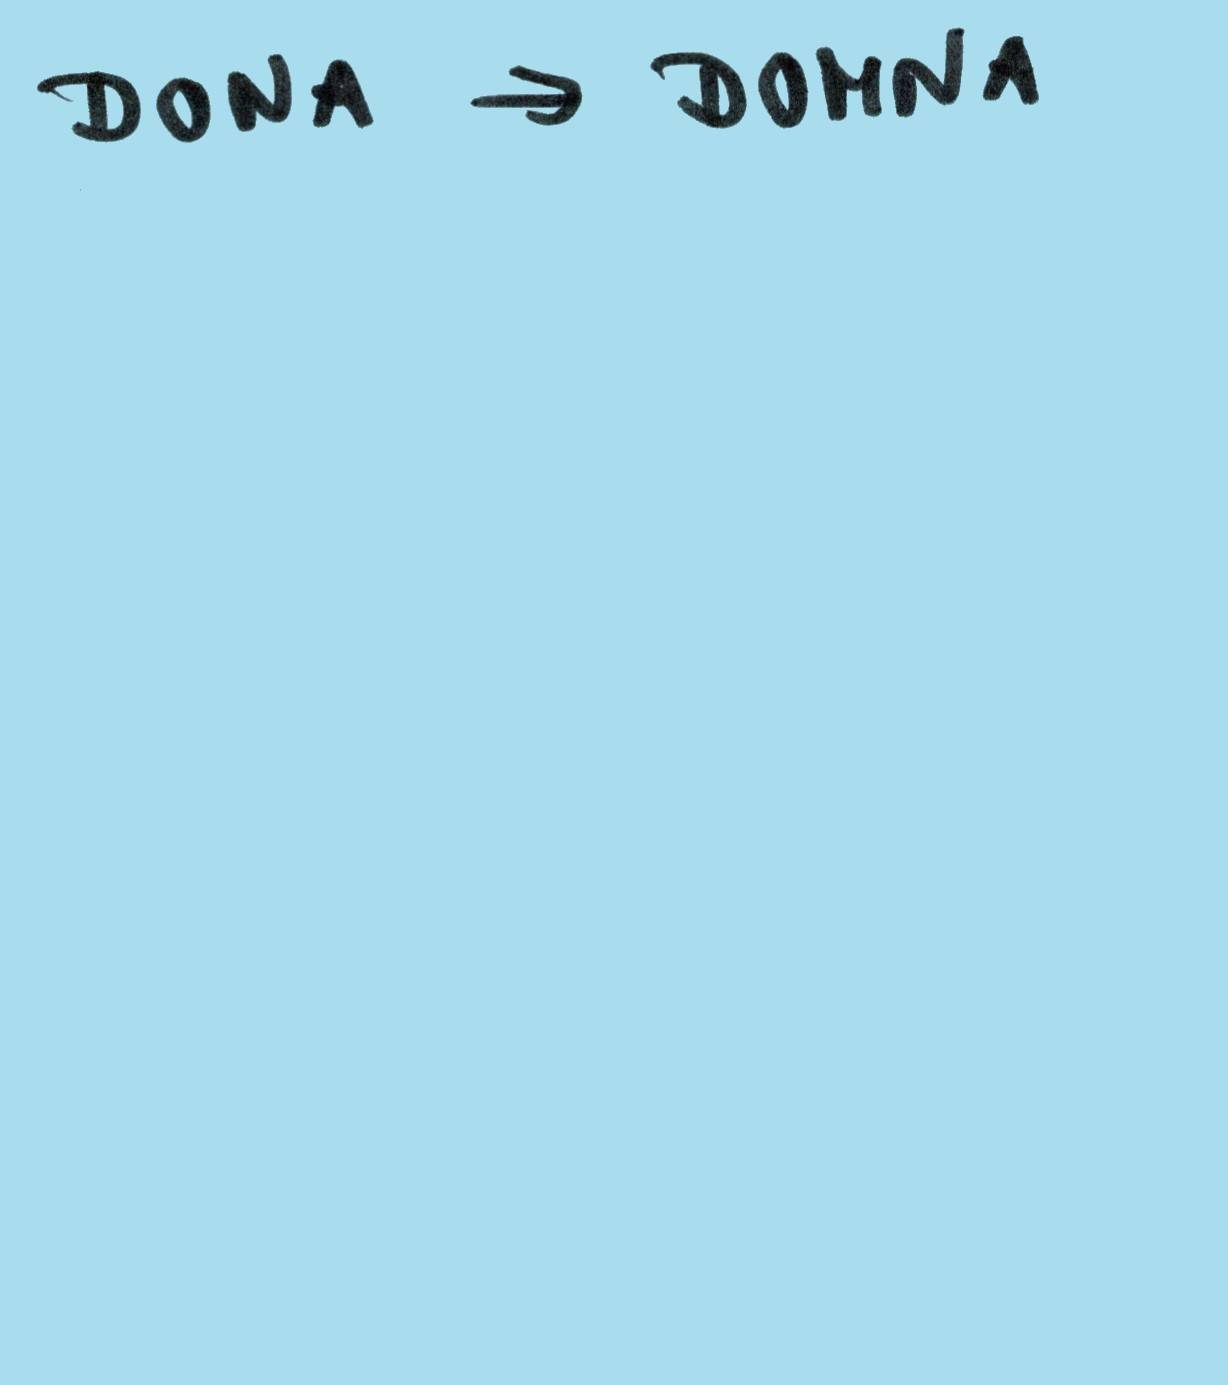 DONA → DOMNA